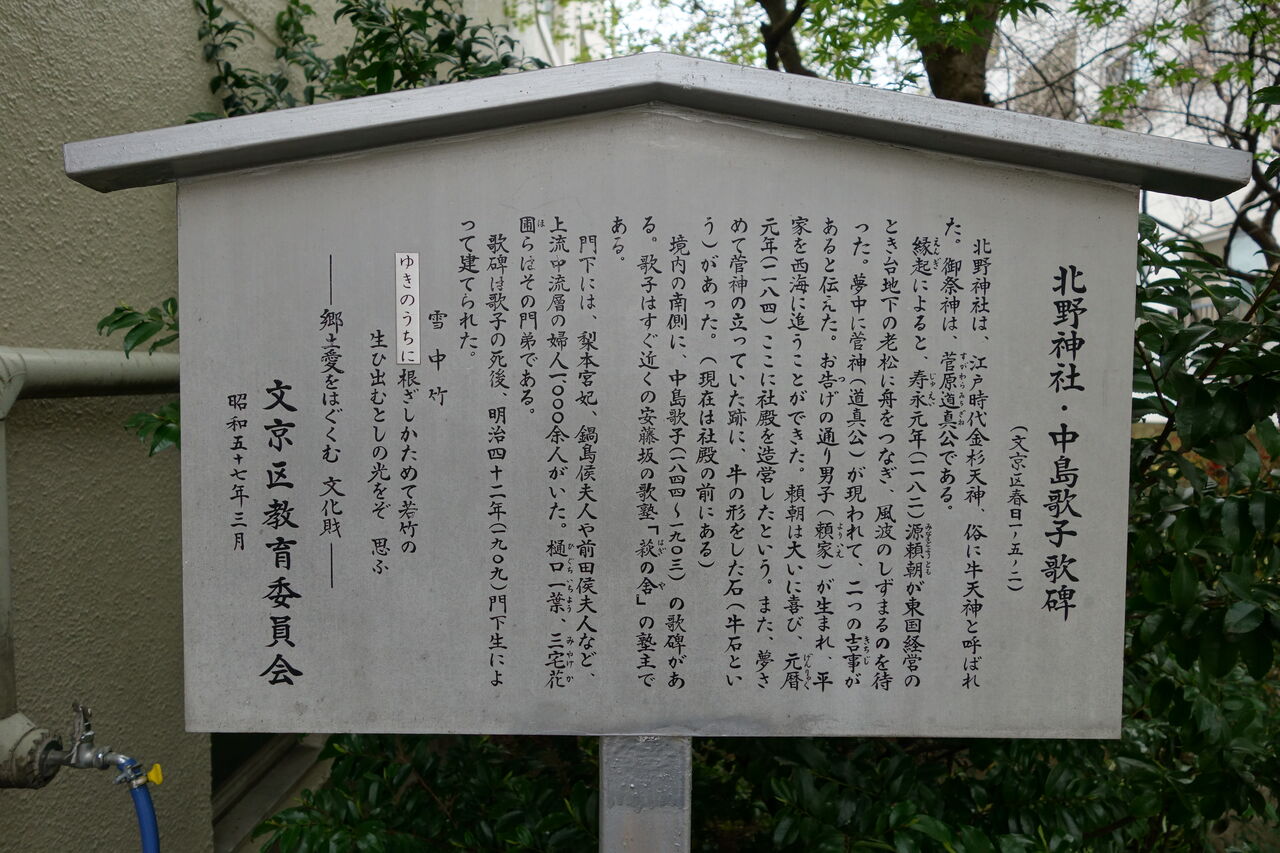 北野神社・中島歌子歌碑
（文京区春日一ノ五ノ二）
北野神社は、江戸時代金杉天神、俗に牛天神と呼ばれ
た。御祭神は、菅原道真公である。
縁起によると、寿永元年（一一八二）源頼朝が東国経営の
とき台地下の老松に舟をつなぎ、風波のしずまるのを待
った。夢中に菅神（道真公）が現われて、二つの吉事が
あると伝えた。お告げの通り男子（頼家）が生まれ、平
家を西海に追うことができた。頼朝は大いに喜び、元暦
元年（一一八四）ここに社殿を造営したという。また、夢さ
めて菅神の立っていた跡に、牛の形をした石（牛石とい
う）があった。（現在は社殿の前にある）
境内の南側に、中島歌子（一八四四〜一九〇三）の歌碑があ
る。歌子はすぐ近くの安藤坂の歌塾「萩の舎」の塾主で
ある。
門下には、梨本宮妃、鍋島侯夫人や前田侯夫人など、
上流中流層の婦人一、〇〇〇余人がいた。樋口一葉、三宅花
圃らはその門弟である。
歌碑は歌子の死後、明治四十二年（一九〇九）門下生によ
って建てられた。
雪中竹
ゆきのうちに根ざしかためて若竹の
生ひ出むとしの光をぞ 思ふ
――郷土愛をはぐくむ 文化財――
文京区教育委員会
昭和五十七年三月